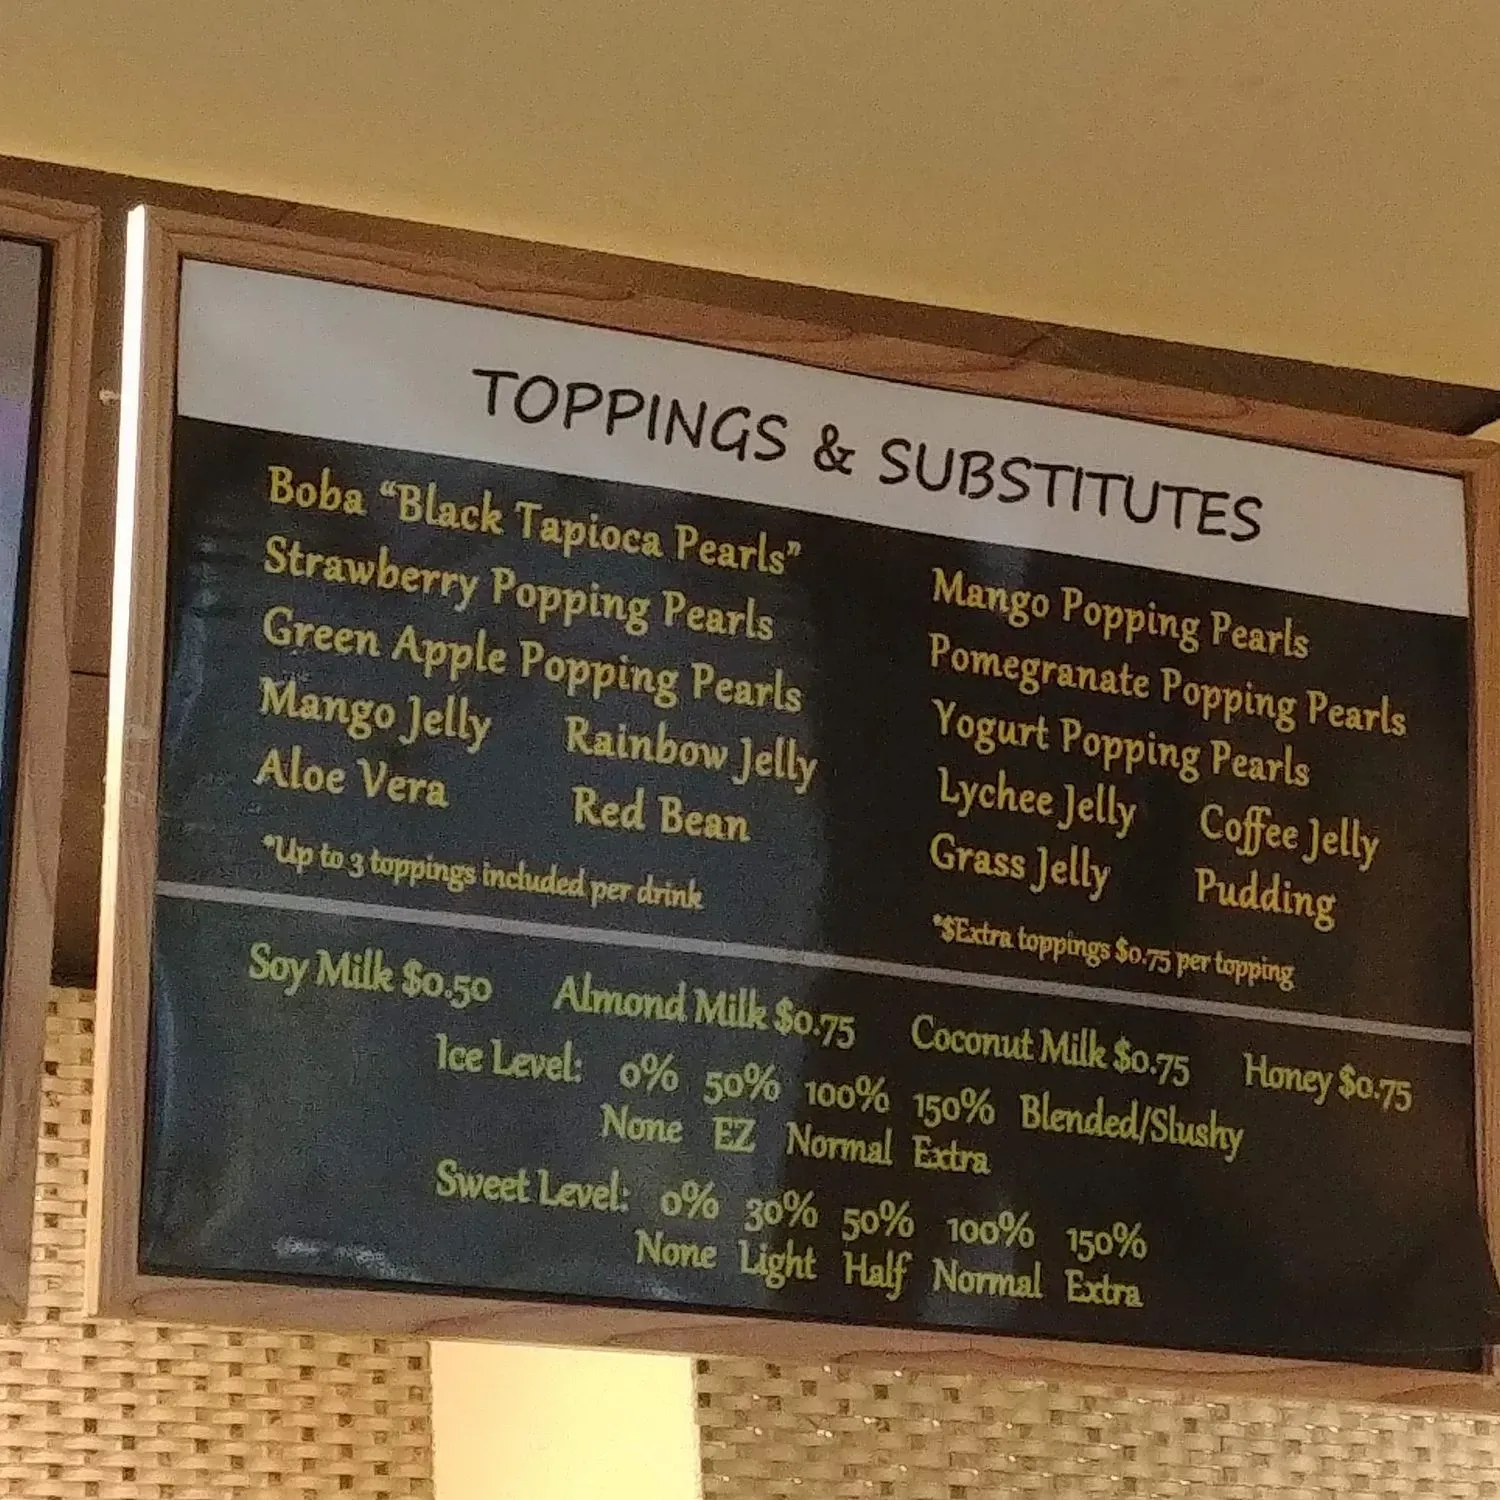 TOPPINGS & SUBSTITUTES
Boba “Black Tapioca Pearls”
Strawberry Popping Pearls
Green Apple Popping Pearls
Mango Jelly Rainbow Jelly
Aloe Vera Red Bean
*Up to 3 toppings included per drink
Mango Popping Pearls
Pomegranate Popping Pearls
Yogurt Popping Pearls
Lychee Jelly Coffee Jelly
Grass Jelly Pudding
*$Extra toppings $0.75 per topping
Soy Milk $0.50 Almond Milk $0.75 Coconut Milk $0.75 Honey $0.75
Ice Level: 0% 50% 100% 150% Blended/Slushy
None EZ Normal Extra
Sweet Level: 0% 30% 50% 100% 150%
None Light Half Normal Extra